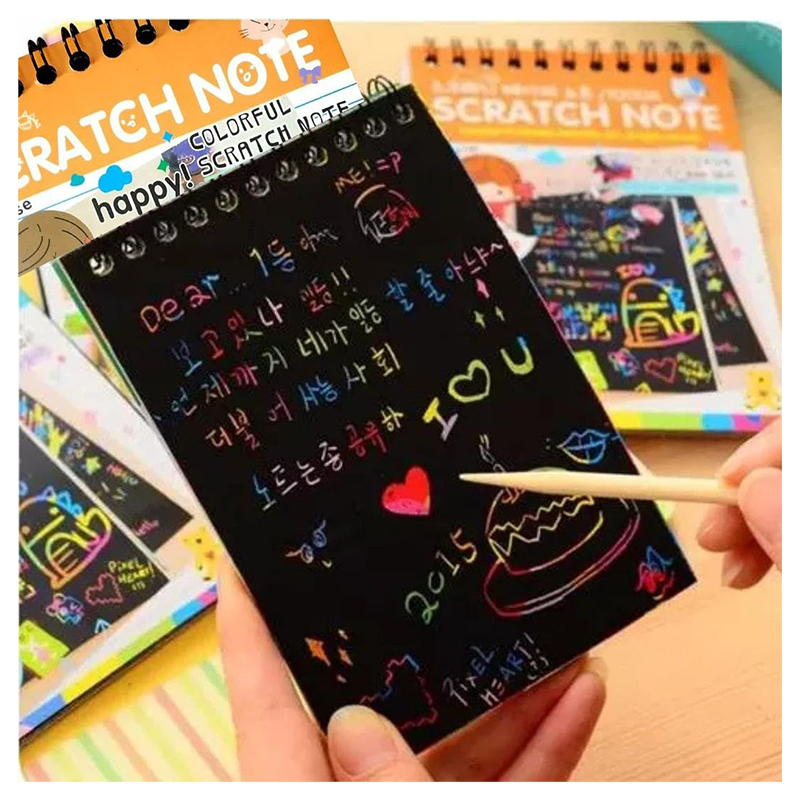 SCRATCH NOTE
COLORFUL
happy! SCRATCH NOTE
SCRATCH NOTE
ME! =P
Dear... 1등
보고있나 일등!!
언제까지 네가 일등 할 줄 아냐~
더불어 사는 사회
노트는 좀 공유하
I U
2015
PIXEL
HEART!
PIXEL
HEART!